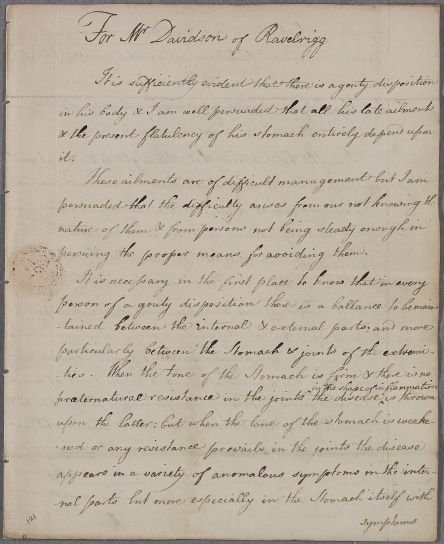 For Mr Davidson of Ravelrigg
It is sufficiently evident that there is a gouty disposition
in his body & I am well persuaded that all his late ailments
& the present flatulency of his stomach entirely depend upon
it.
These ailments are of difficult management but I am
persuaded that the difficulty arises from our not knowing the
nature of them & from persons not being steady enough in
persuing the proper means for avoiding them.
It is necessary in the first place to know that in every
person of a gouty disposition there is a ballance to be main
-tained between the internal & external parts, and more
particularly between the Stomach & joints of the extremi-
-ties. When the tone of the Stomach is firm & there is no
in the shape of inflammation
præternatural resistance in the joints the disease is thrown
upon the latter; but when the tone of the stomach is weake
ned or any resistance prevails in the joints the disease
appears in a variety of anomalous symptoms in the inter-
nal parts but more especially in the Stomach itself with
symptoms
121